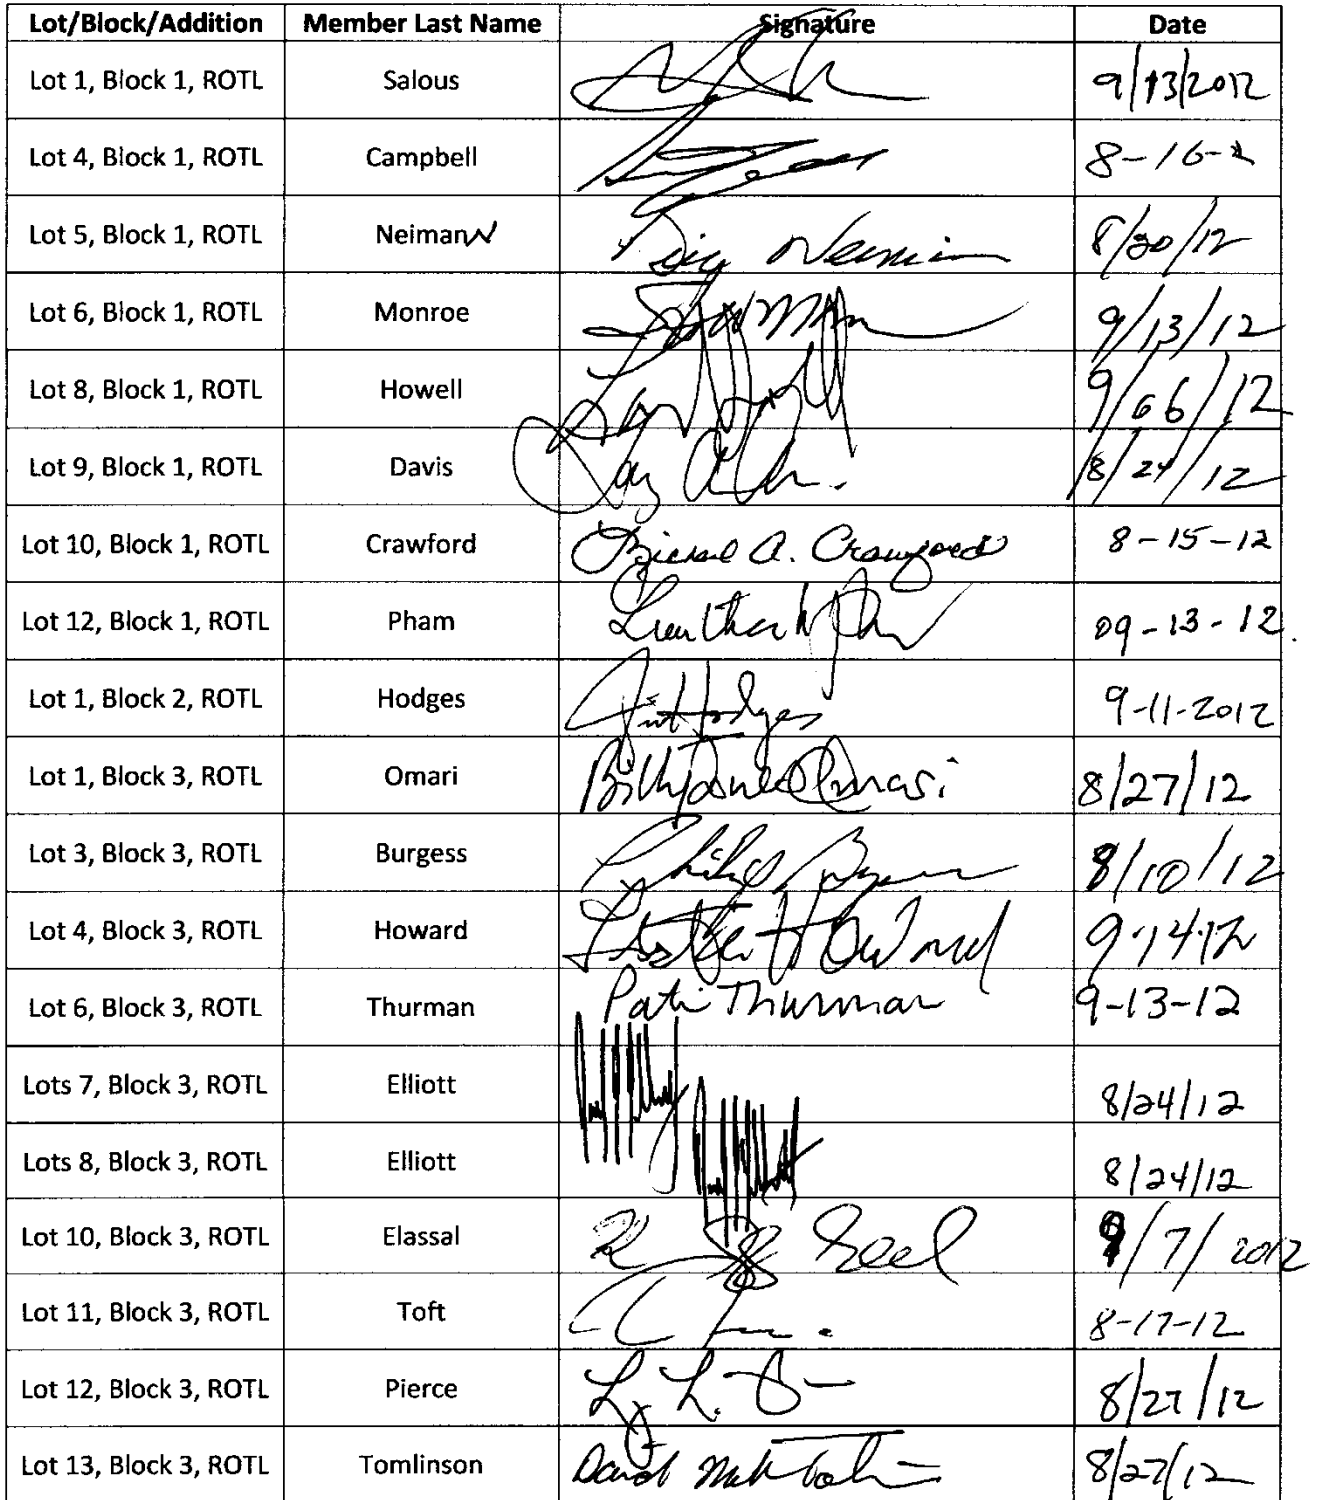 Lot/Block/Addition Member Last Name Signature Date
Lot 1, Block 1, ROTL Salous 9/13/2012
Lot 4, Block 1, ROTL Campbell 8-16-
Lot 5, Block 1, ROTL NeimanN 8/20/12
Lot 6, Block 1, ROTL Monroe 9/13/12
Lot 8, Block 1, ROTL Howell 9/06/12
Lot 9, Block 1, ROTL Davis 8/24/12
Lot 10, Block 1, ROTL Crawford A. Crawford 8-15-12
Lot 12, Block 1, ROTL Pham 09-13-12.
Lot 1, Block 2, ROTL Hodges Jim Hodges 9-11-2012
Lot 1, Block 3, ROTL Omari Billy Omari 8/27/12
Lot 3, Block 3, ROTL Burgess 8/10/12
Lot 4, Block 3, ROTL Howard Howard 9-14-12
Lot 6, Block 3, ROTL Thurman Pati Thurman 9-13-12
Lots 7, Block 3, ROTL Elliott 8/24/12
Lots 8, Block 3, ROTL Elliott 8/24/12
Lot 10, Block 3, ROTL Elassal 9/7/2012
Lot 11, Block 3, ROTL Toft 8-17-12
Lot 12, Block 3, ROTL Pierce 8/27/12
Lot 13, Block 3, ROTL Tomlinson David 8/27/12